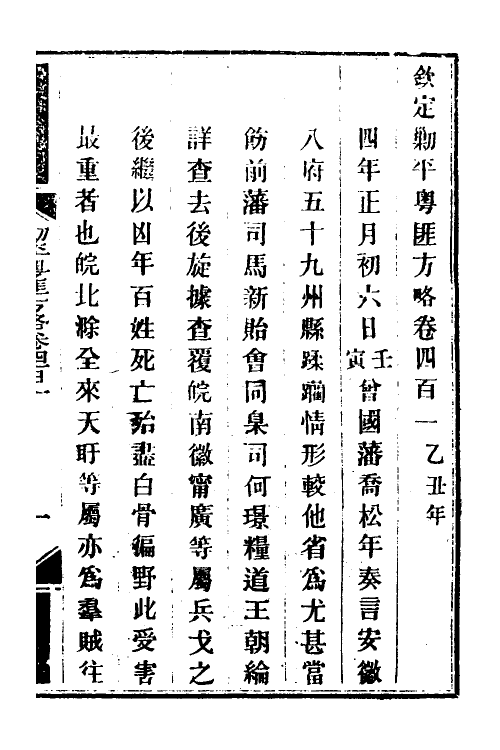 欽定勦平粵匪方略卷四百一乙丑年
四年正月初六日壬寅曾國藩喬松年奏言安徽
八府五十九州縣蹂躪情形較他省爲尤甚當
飭前藩司馬新貽會同臬司何璟糧道王朝綸
詳查去後旋據查覆皖南徽甯廣等屬兵戈之
後繼以凶年百姓死亡殆盡白骨徧野此受害
最重者也皖北滁全來天盱等屬亦爲羣賊往
一